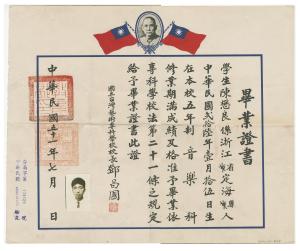 畢業證書
學生陳懋良係浙江省定海縣人
中華民國貳拾陸年壹月拾伍日生
在本校五年制音樂科
修業期滿成績及格准予畢業依
專科學校法第二十一條之規定
給予畢業證書此證
國立台灣藝術專科學校校長鄧昌國
中華民國五十一年七月 日